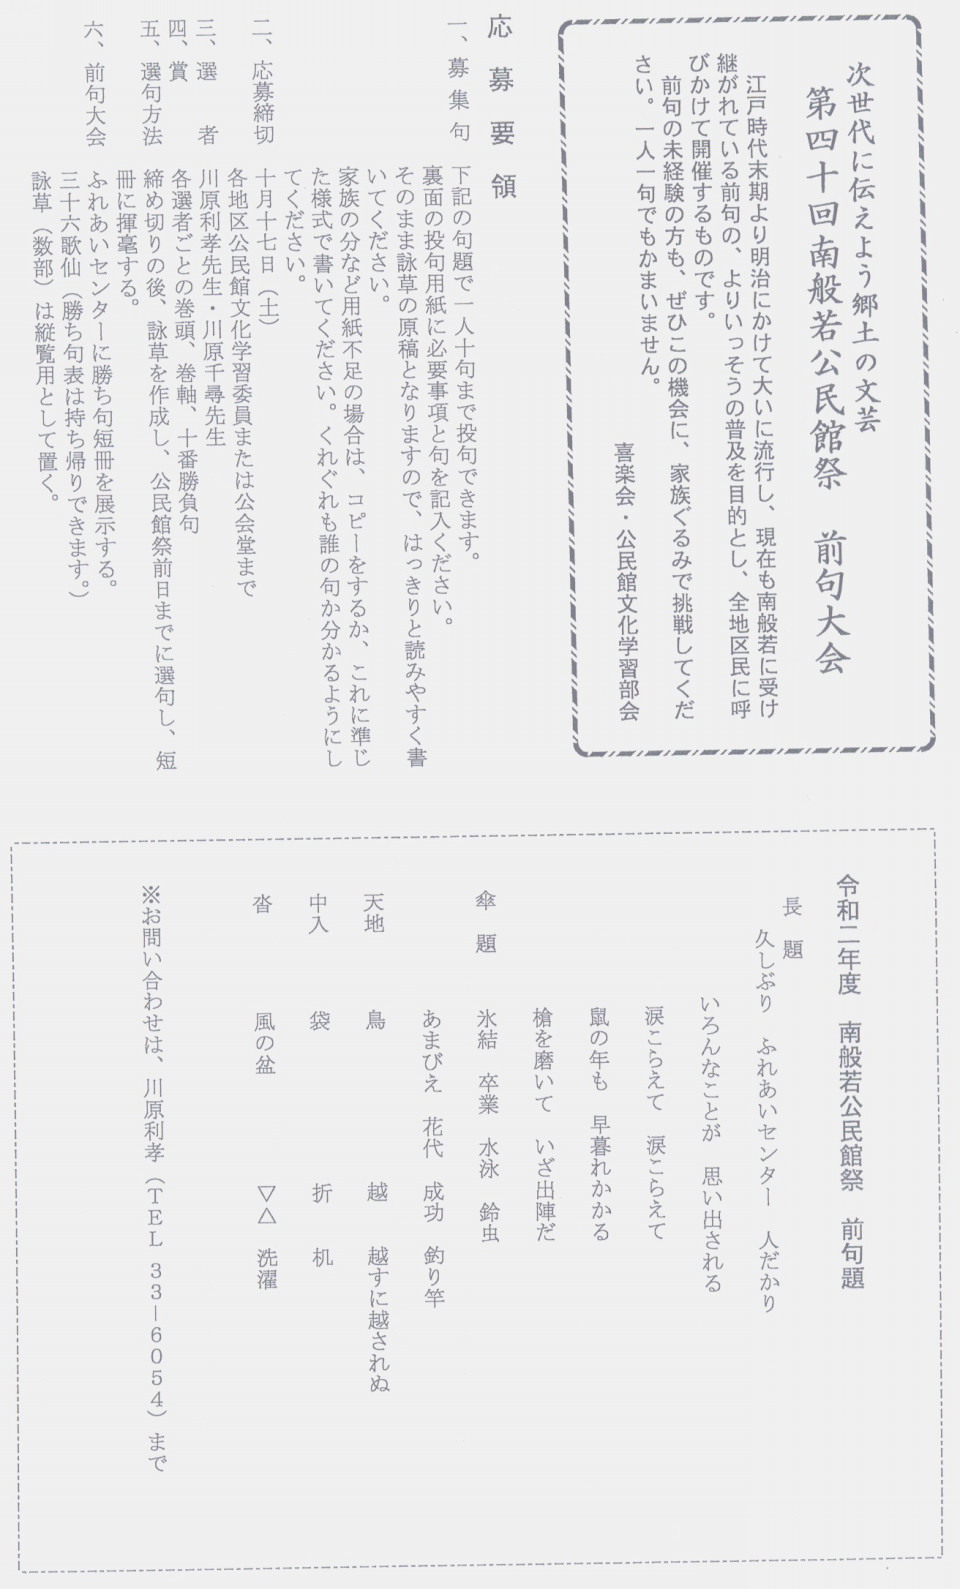 次世代に伝えよう郷土の文芸
第四十回南般若公民館祭　前句大会
江戸時代末期より明治にかけて大いに流行し、現在も南般若に受け
継がれている前句の、よりいっそうの普及を目的とし、全地区民に呼
びかけて開催するものです。
前句の未経験の方も、ぜひこの機会に、家族ぐるみで挑戦してくだ
さい。一人一句でもかまいません。
喜楽会・公民館文化学習部会
応募要領
一、募集句　下記の句題で一人十句まで投句できます。
裏面の投句用紙に必要事項と句を記入ください。
そのまま詠草の原稿となりますので、はっきりと読みやすく書
いてください。
家族の分など用紙不足の場合は、コピーをするか、これに準じ
た様式で書いてください。くれぐれも誰の句か分かるようにし
てください。
二、応募締切　十月十七日（土）
各地区公民館文化学習委員または公会堂まで
三、選者　川原利孝先生・川原千尋先生
四、賞　各選者ごとの巻頭、巻軸、十番勝負句
五、選句方法　締め切りの後、詠草を作成し、公民館祭前日までに選句し、短
冊に揮毫する。
六、前句大会　ふれあいセンターに勝ち句短冊を展示する。
三十六歌仙（勝ち句表は持ち帰りできます。）
詠草（数部）は縦覧用として置く。
令和二年度　南般若公民館祭　前句題
長題
久しぶり　ふれあいセンター　人だかり
いろんなことが　思い出される
涙こらえて　涙こらえて
鼠の年も　早暮れかかる
槍を磨いて　いざ出陣だ
傘題　氷結　卒業　水泳　鈴虫
あまびえ　花代　成功　釣り竿
天地　鳥　越　越すに越されぬ
中入　袋　折　机
沓　風の盆　▽△　洗濯
※お問い合わせは、川原利孝（ＴＥＬ ３３－６０５４）まで